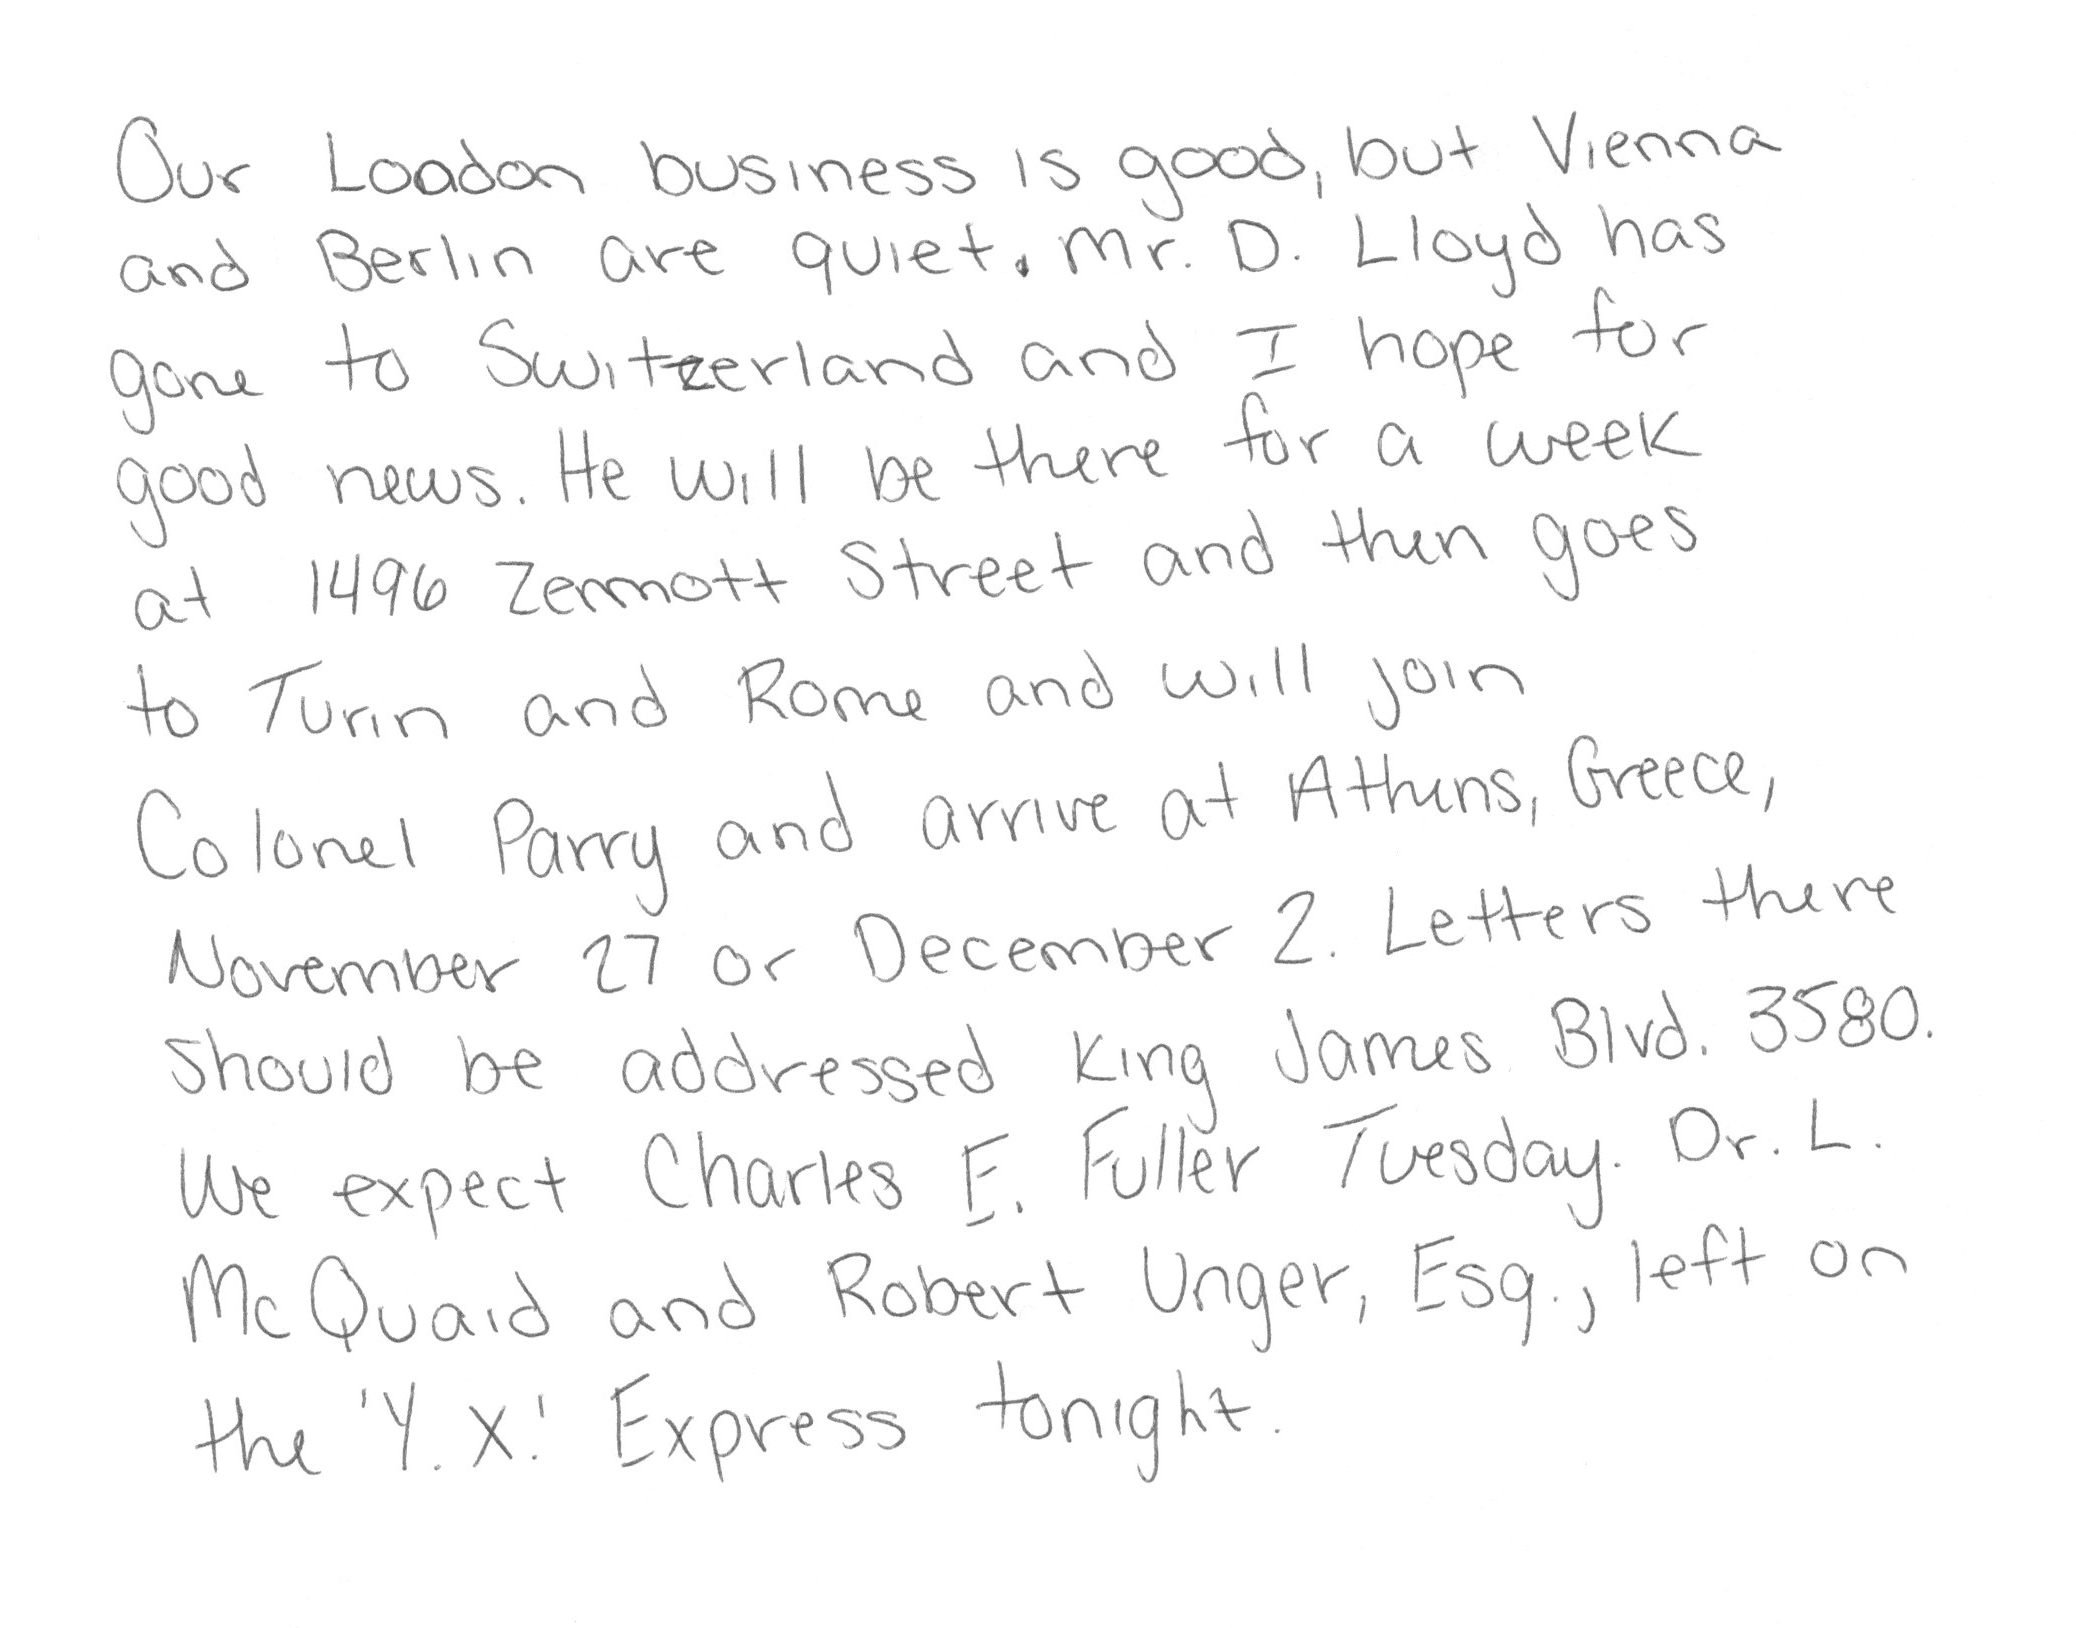 Our London business is good, but Vienna
and Berlin are quiet. Mr. D. Lloyd has
gone to Switzerland and I hope for
good news. He will be there for a week
at 1496 Zermott Street and then goes
to Turin and Rome and will join
Colonel Parry and arrive at Athens, Greece,
November 27 or December 2. Letters there
should be addressed King James Blvd. 3580.
We expect Charles E. Fuller Tuesday. Dr. L.
McQuaid and Robert Unger, Esq., left on
the 'Y. X.' Express tonight.